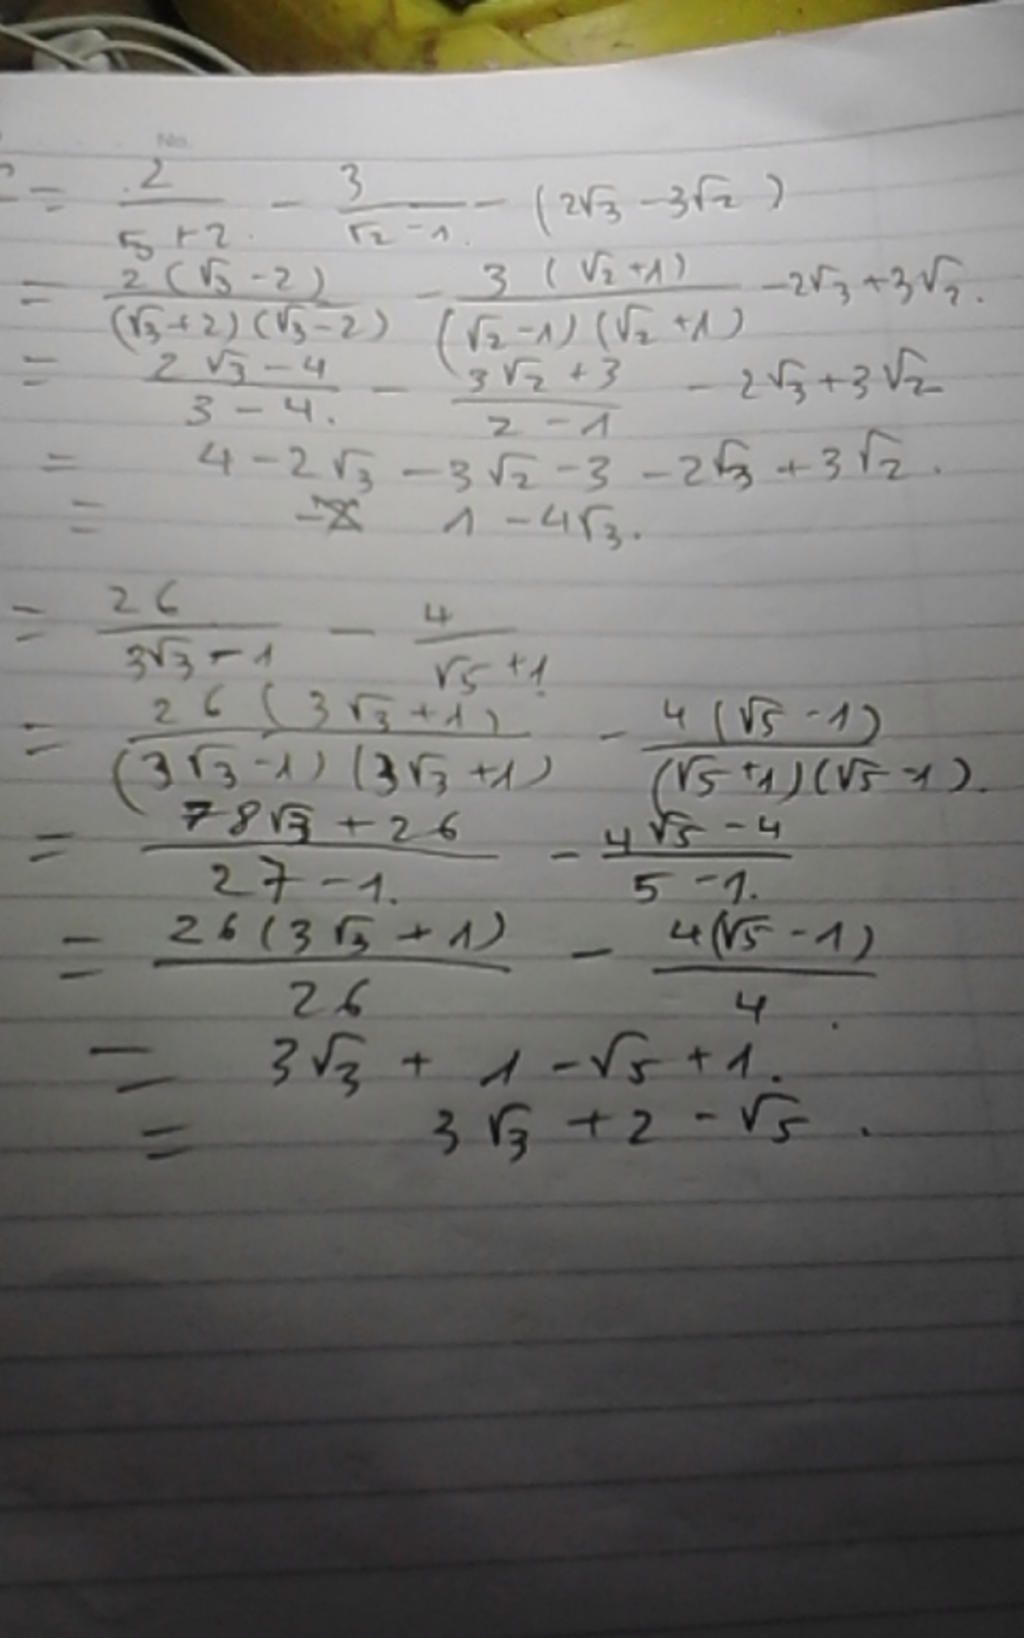 No.
= 2/(√3+2) - 3/(√2-1) - (2√3 - 3√2)
= 2(√3-2)/((√3+2)(√3-2)) - 3(√2+1)/((√2-1)(√2+1)) - 2√3 + 3√2.
= (2√3-4)/(3-4.) - (3√2+3)/(2-1) - 2√3 + 3√2
= 4 - 2√3 - 3√2 - 3 - 2√3 + 3√2.
= 1 - 4√3.
= 26/(3√3-1) - 4/(√5+1)
= 26(3√3+1)/((3√3-1)(3√3+1)) - 4(√5-1)/((√5+1)(√5-1)).
= (78√3+26)/(27-1.) - (4√5-4)/(5-1.)
= 26(3√3+1)/26 - 4(√5-1)/4.
= 3√3 + 1 - √5 + 1.
= 3√3 + 2 - √5.